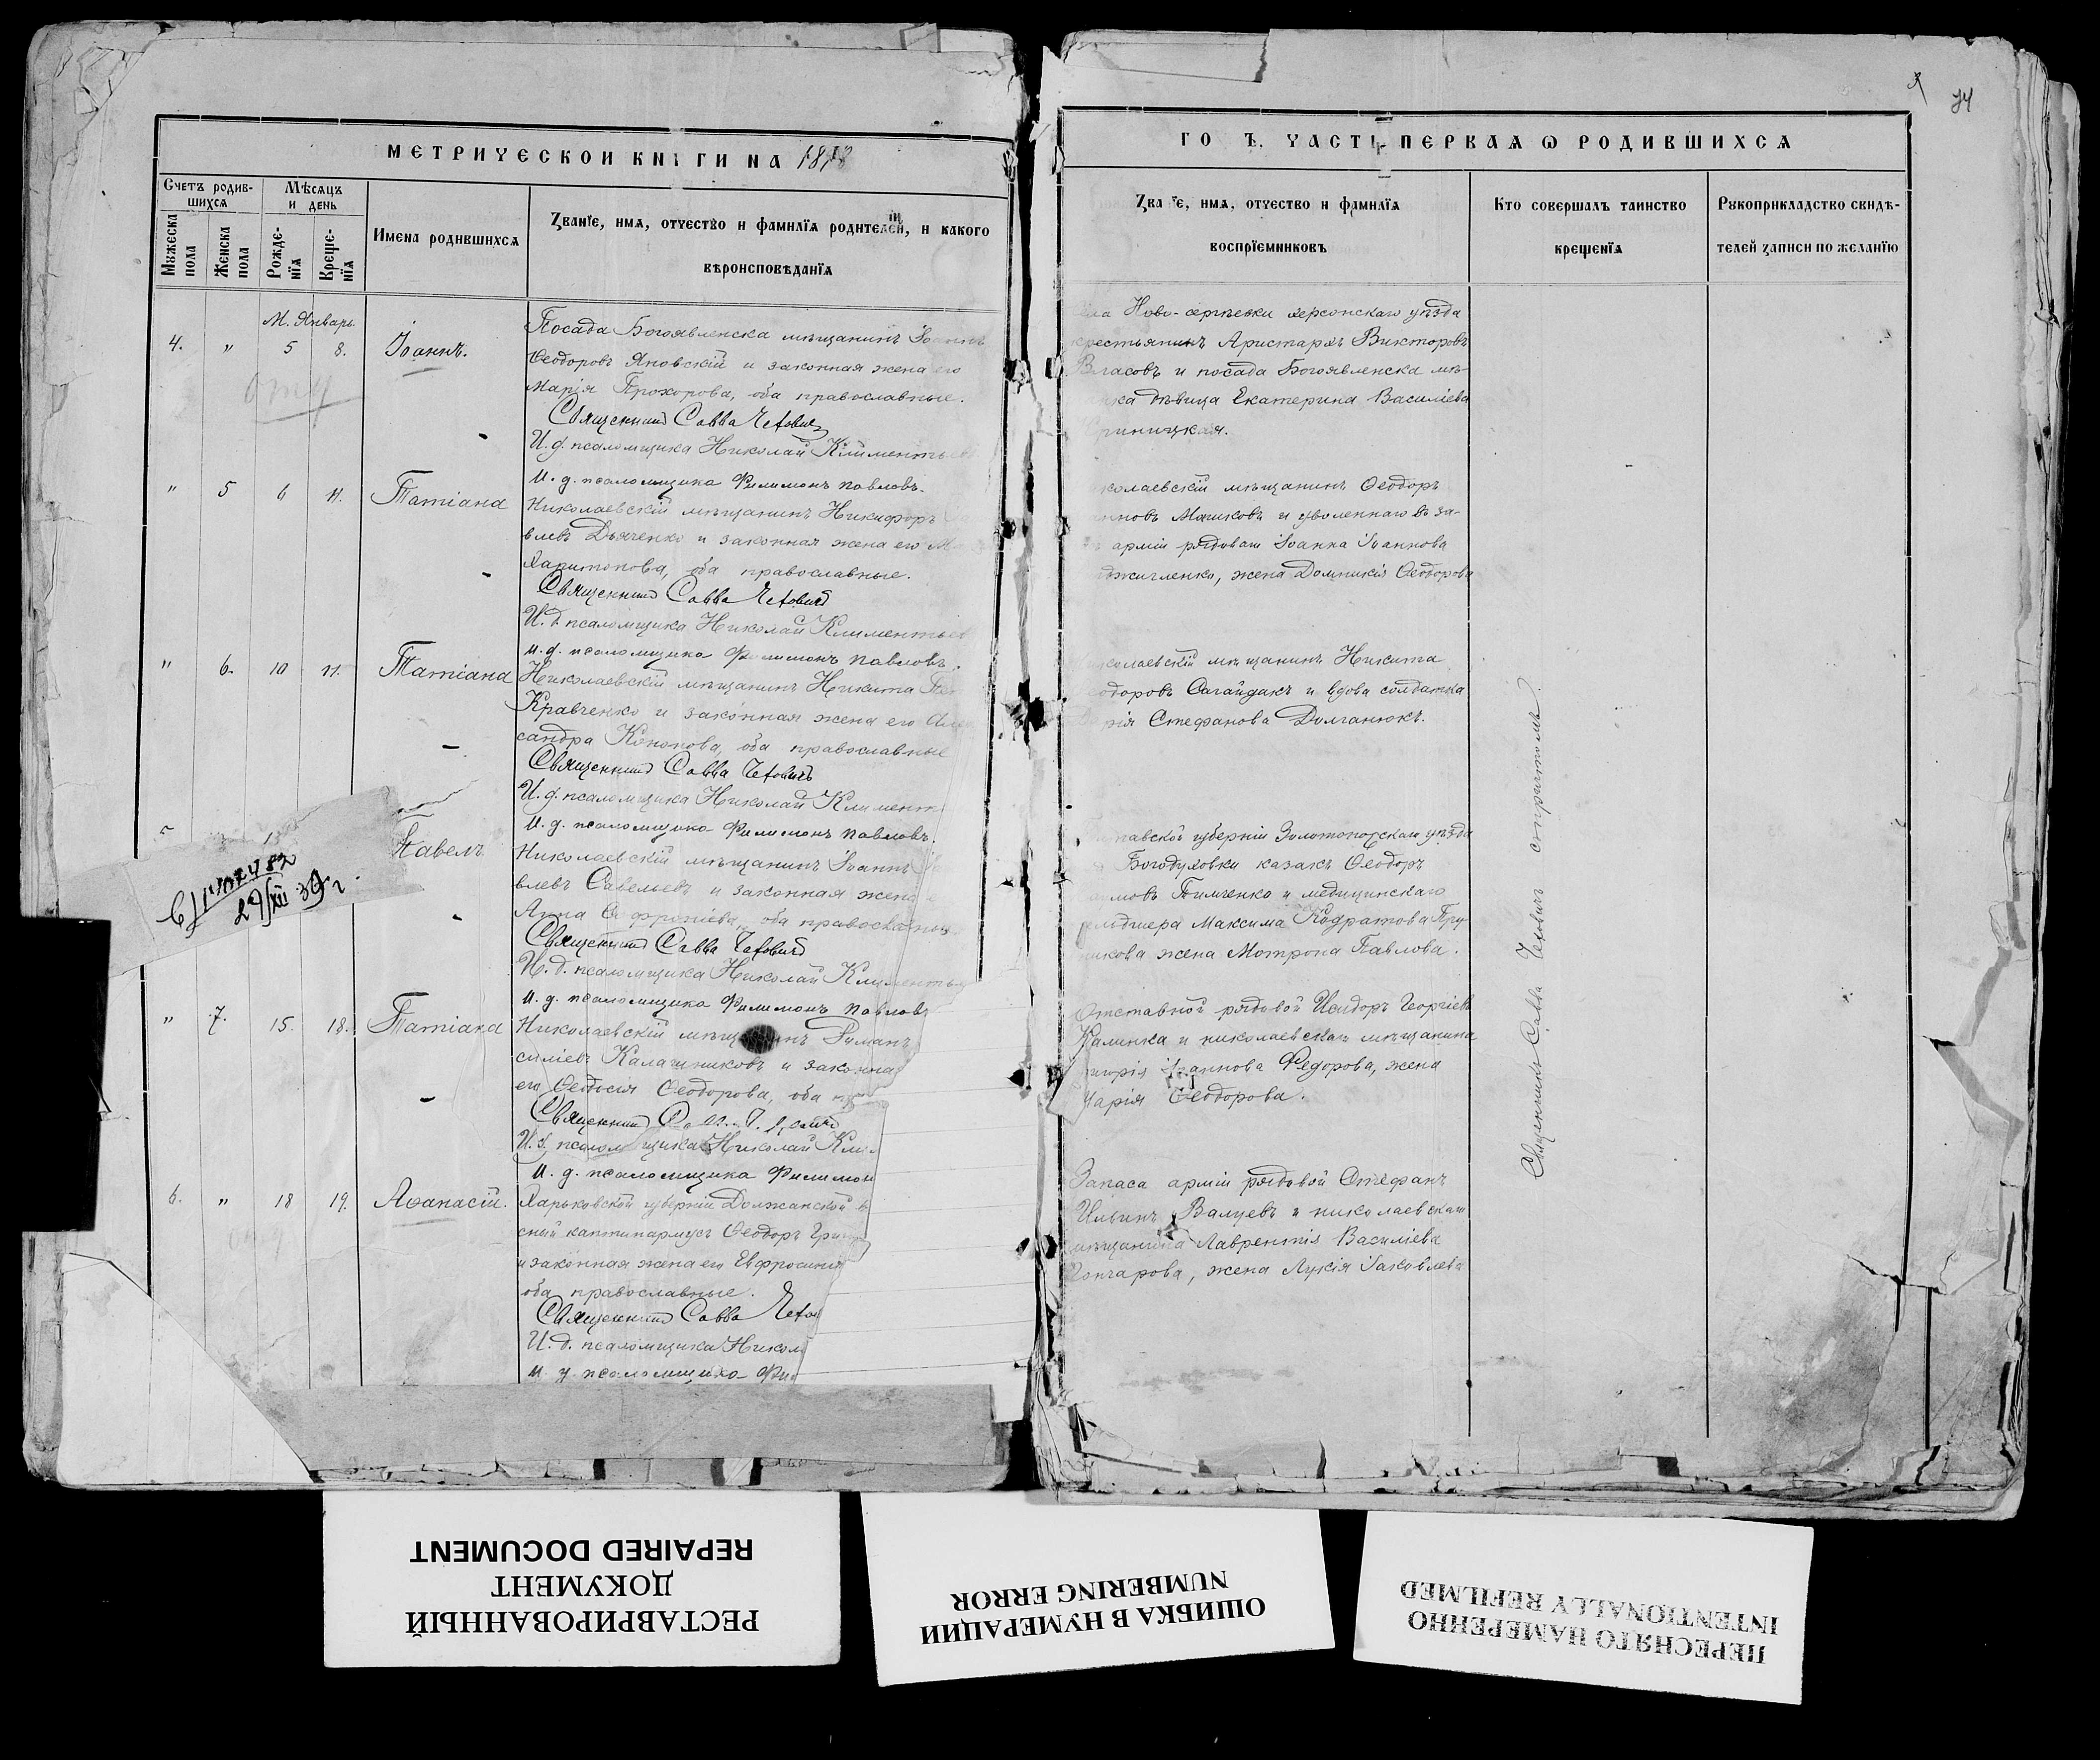 МЕТРИЧЕСКОИ КНИГИ НА 1898
Счетъ родив-
шихся
Мѣсяцъ
и день
Мужеска
пола
Женска
пола
Рожде-
нїя
Креще-
нїя
Имена родившихся
Званїе, имя, отчество и фамилїя родителей, и какого
вѣроисповѣданїя
М. Январь.
4. " 5 8. Іоаннъ.
Посада Богоявленска мѣщанинъ Іоаннъ
Ѳеодоровъ Яновскій и законная жена его
Марія Прохорова, оба православные.
Священникъ Савва Чеховичъ
И. д. псаломщика Николай Климентьев
И. д. псаломщика Филимонъ Павловъ.
" 5 6 11. Татіана
Николаевскій мѣщанинъ Никифоръ
влевъ Дьяченко и законная жена его М
Харитонова, оба православные.
Священникъ Савва Чеховичъ
И. д. псаломщика Николай Климентьев
И. д. псаломщика Филимонъ Павловъ.
" 6. 10 11. Татіана
Николаевскій мѣщанинъ Никита
Кравченко и законная жена его Але
сандра Кононова, оба православные
Священникъ Савва Чеховичъ
И. д. псаломщика Николай Климент
И. д. псаломщика Филимонъ Павловъ.
5 Павелъ
29/XII 39 г.
Николаевскій мѣщанинъ Іоаннъ
влевъ Савельевъ и законная жена
Анна Софроніева, оба православны
Священникъ Савва Чеховичъ
И. д. псаломщика Николай Климентье
И. д. псаломщика Филимонъ Павлов
" 7. 15. 18. Татіана
Николаевскій мѣщ нинъ Романъ
силіевъ Калашниковъ и законна
его Ѳеодосія Ѳеодорова, оба
Священникъ
И. д. псаломщика Николай Кли
И. д. псаломщика Филимон
6. " 18 19. Аѳанасій.
Харьковской губерніи Должанской в
скій каптинармусъ Ѳеодоръ Григ
и законная жена его Евфросинія
оба православные.
Священникъ Савва Чехов
И. д. псаломщика Никол
И. д. псаломщика Фил
74
ГО Ъ. ЧАСТЬ ПЕРВАЯ Ѡ РОДИВШИХСЯ
Зва е, имя, отчество и фамилїя
воспрїемниковъ
Кто совершалъ таинство
крещенїя
Рукоприкладство свидѣ-
телей записи по желанїю
Ново-сергѣевки херсонскаго уѣзда
крестьянинъ Аристархъ Викторовъ
Власовъ и посада Богоявленска мѣ-
ка дѣвица Екатерина Василіева
риницкая.
колаевскій мѣщанинъ Ѳеодоръ
нновъ Машковъ и уволеннаго въ за-
арміи рядоваго Іоанна Іоаннова
джиченко, жена Домникія Ѳеодорова
иколаевскій мѣщанинъ Никита
еодоровъ Сагайдакъ и вдова солдатка
рія Стефанова Долганюкъ.
тавской губерніи Золотоношскаго уѣзда
Богодуховки казакъ Ѳеодоръ
имовъ Тимченко и медицинскаго
фельдшера Максима Кодратова Пру
никова жена Мотрона Павлова.
Отставной рядовой Исидоръ Георгіевъ
Калинка и николаевскаго мѣщанина
Іоаннова Федорова, жена
Марія Ѳеодорова.
Запаса арміи рядовой Стефанъ
Ильинъ Валуевъ и николаевскаго
мѣщанина Лаврентія Василіева
Гончарова, жена Лукія Іаковлева
Священникъ Савва Чеховичъ с причтомъ.
РЕСТАВРИРОВАННЫЙ
ДОКУМЕНТ
REPAIRED DOCUMENT
ОШИБКА В НУМЕРАЦИИ
NUMBERING ERROR
ПЕРЕСНЯТО НАМЕРЕННО
INTENTIONALLY REFILMED